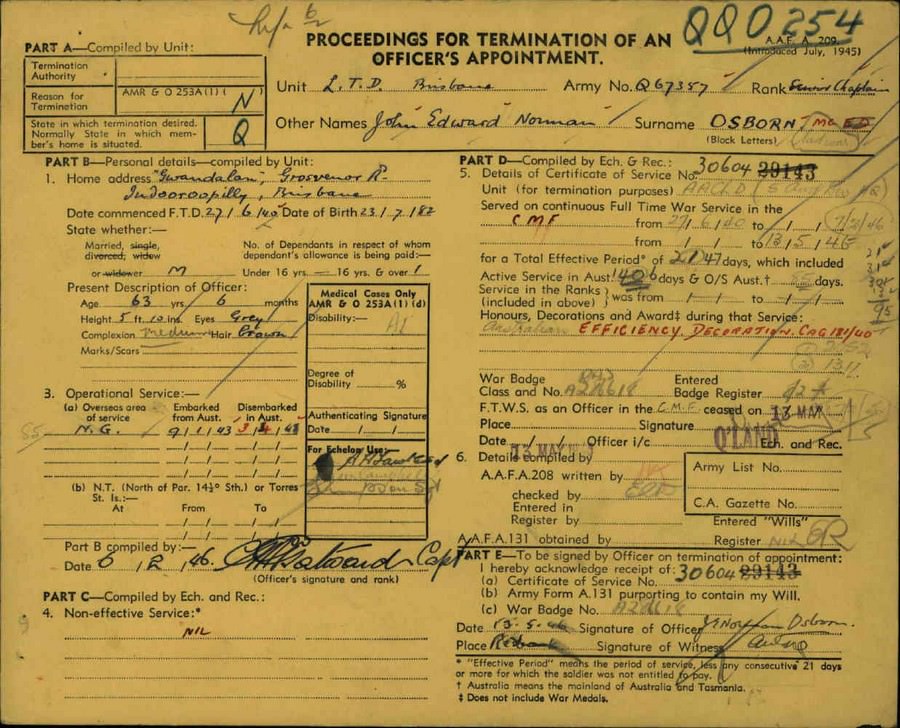 QQO254
PROCEEDINGS FOR TERMINATION OF AN
OFFICER'S APPOINTMENT.
A.A.F. A 209.
(Introduced July, 1945)
PART A—Compiled by Unit:
Termination
Authority
Reason for
Termination
AMR & O 253A(1)( ) N
State in which termination desired.
Normally State in which mem-
ber's home is situated.
Q
Unit L.T.D. Brisbane Army No. Q67357 Rank Senior Chaplain
Other Names John Edward Norman Surname OSBORN MC ED
(Block Letters)
PART B—Personal details—compiled by Unit:
1. Home address "Gwandalan", Grosvenor Rd
Indooroopilly, Brisbane
Date commenced F.T.D. 27/6/40 Date of Birth 23/7/82
State whether:—
Married, single,
divorced, widow
or widower M
No. of Dependants in respect of whom
dependant's allowance is being paid:—
Under 16 yrs. — 16 yrs. & over 1
Present Description of Officer:
Age 63 yrs 6 months
Height 5 ft. 10 ins. Eyes Grey
Complexion Medium Hair Brown
Marks/Scars
Medical Cases Only
AMR & O 253A(1)(d)
Disability:—
A1
Degree of
Disability %
Authenticating Signature
Date / /
For Echelon Use:
3. Operational Service:—
(a) Overseas area
of service
Embarked
from Aust.
Disembarked
in Aust.
55 N.G. 9/1/43 3/4/43
(b) N.T. (North of Par. 14½° Sth.) or Torres
St. Is.:—
At From To
Part B compiled by:—
Date 6/2/46. Capt
(Officer's signature and rank)
PART C—Compiled by Ech. and Rec.:
4. Non-effective Service:*
NIL
PART D—Compiled by Ech. & Rec.:
5. Details of Certificate of Service No. 30604 29143
Unit (for termination purposes) AACH.D
Served on continuous Full Time War Service in the
CMF from 27/6/40 to / / 7/2/46
from / / to 13/5/46
for a Total Effective Period* of 2147 days, which included
Active Service in Aust. 1406 days & O/S Aust.† 85 days
Service in the Ranks
(included in above) } was from / / to / /
Honours, Decorations and Award‡ during that Service:
Australian EFFICIENCY DECORATION. CAG 181/40
War Badge
Class and No. A226618
Entered
Badge Register
F.T.W.S. as an Officer in the C.M.F. ceased on 13 MAY
Place Signature
Q'LAND
Date / / Officer i/c Ech. and Rec.
13 MAY
6. Details compiled by
A.A.F.A.208 written by
checked by
Entered in
Register by
A.A.F.A.131 obtained by
Army List No.
C.A. Gazette No.
Entered "Wills"
Register NIL
PART E—To be signed by Officer on termination of appointment:
I hereby acknowledge receipt of:
(a) Certificate of Service No. 30604 29143
(b) Army Form A.131 purporting to contain my Will.
(c) War Badge No. A226618
Date 13.5.46 Signature of Officer J E Norman Osborn.
Place Redbank Signature of Witness
* "Effective Period" means the period of service, less any consecutive 21 days
or more for which the soldier was not entitled to pay.
† Australia means the mainland of Australia and Tasmania.
‡ Does not include War Medals.